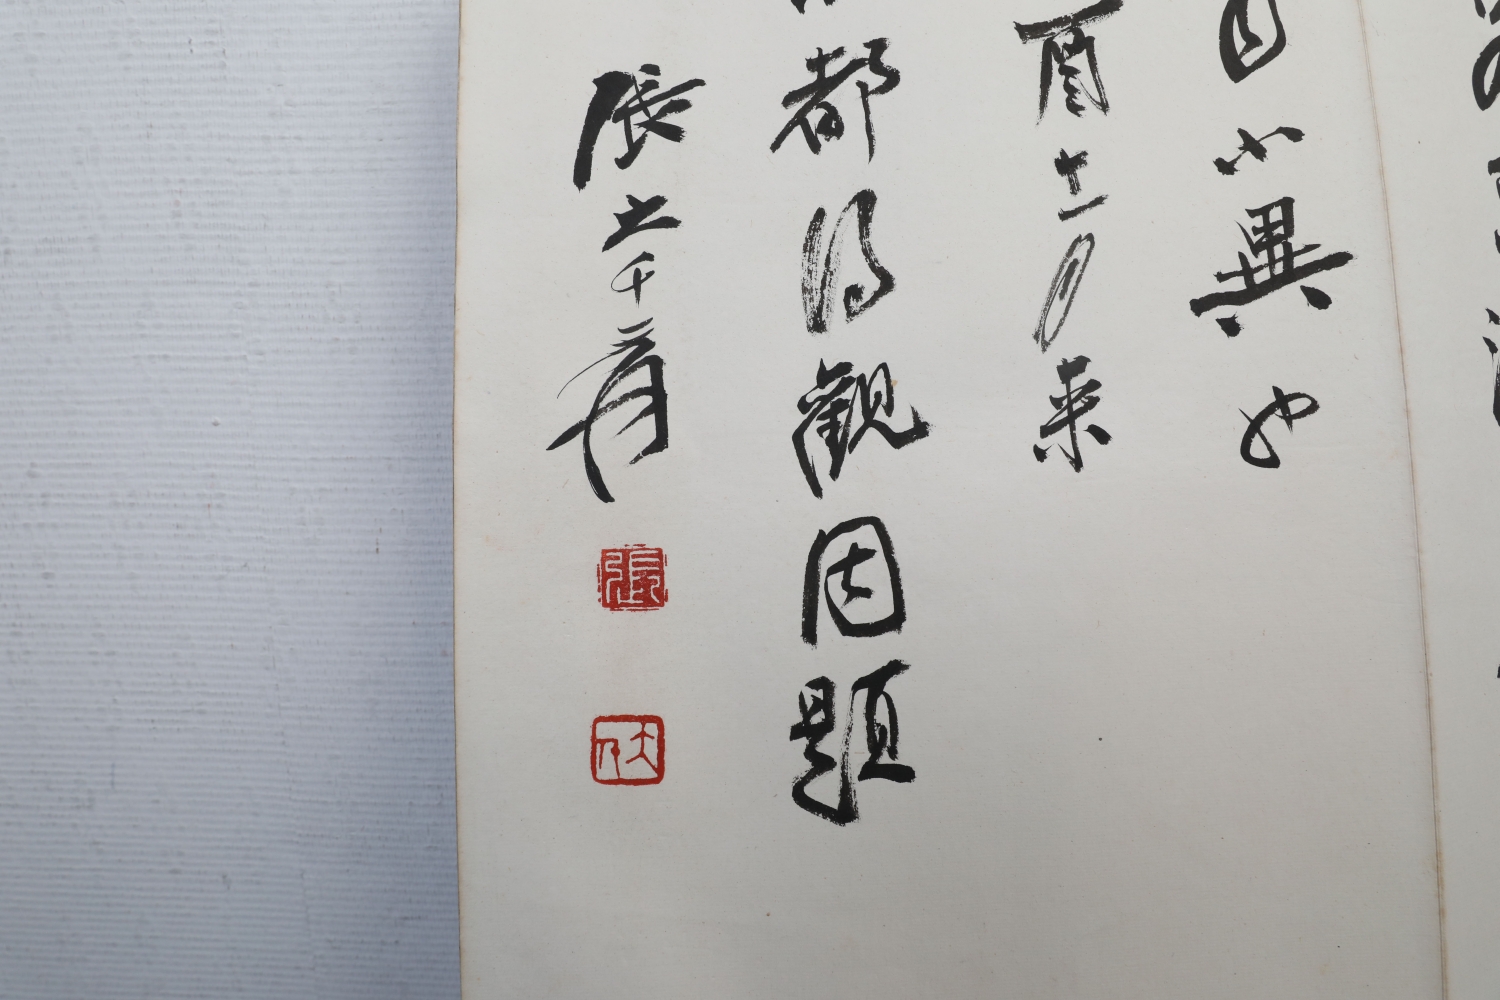 自小異也
酉十二月来
都得觀因題
張大千爰
張
大千